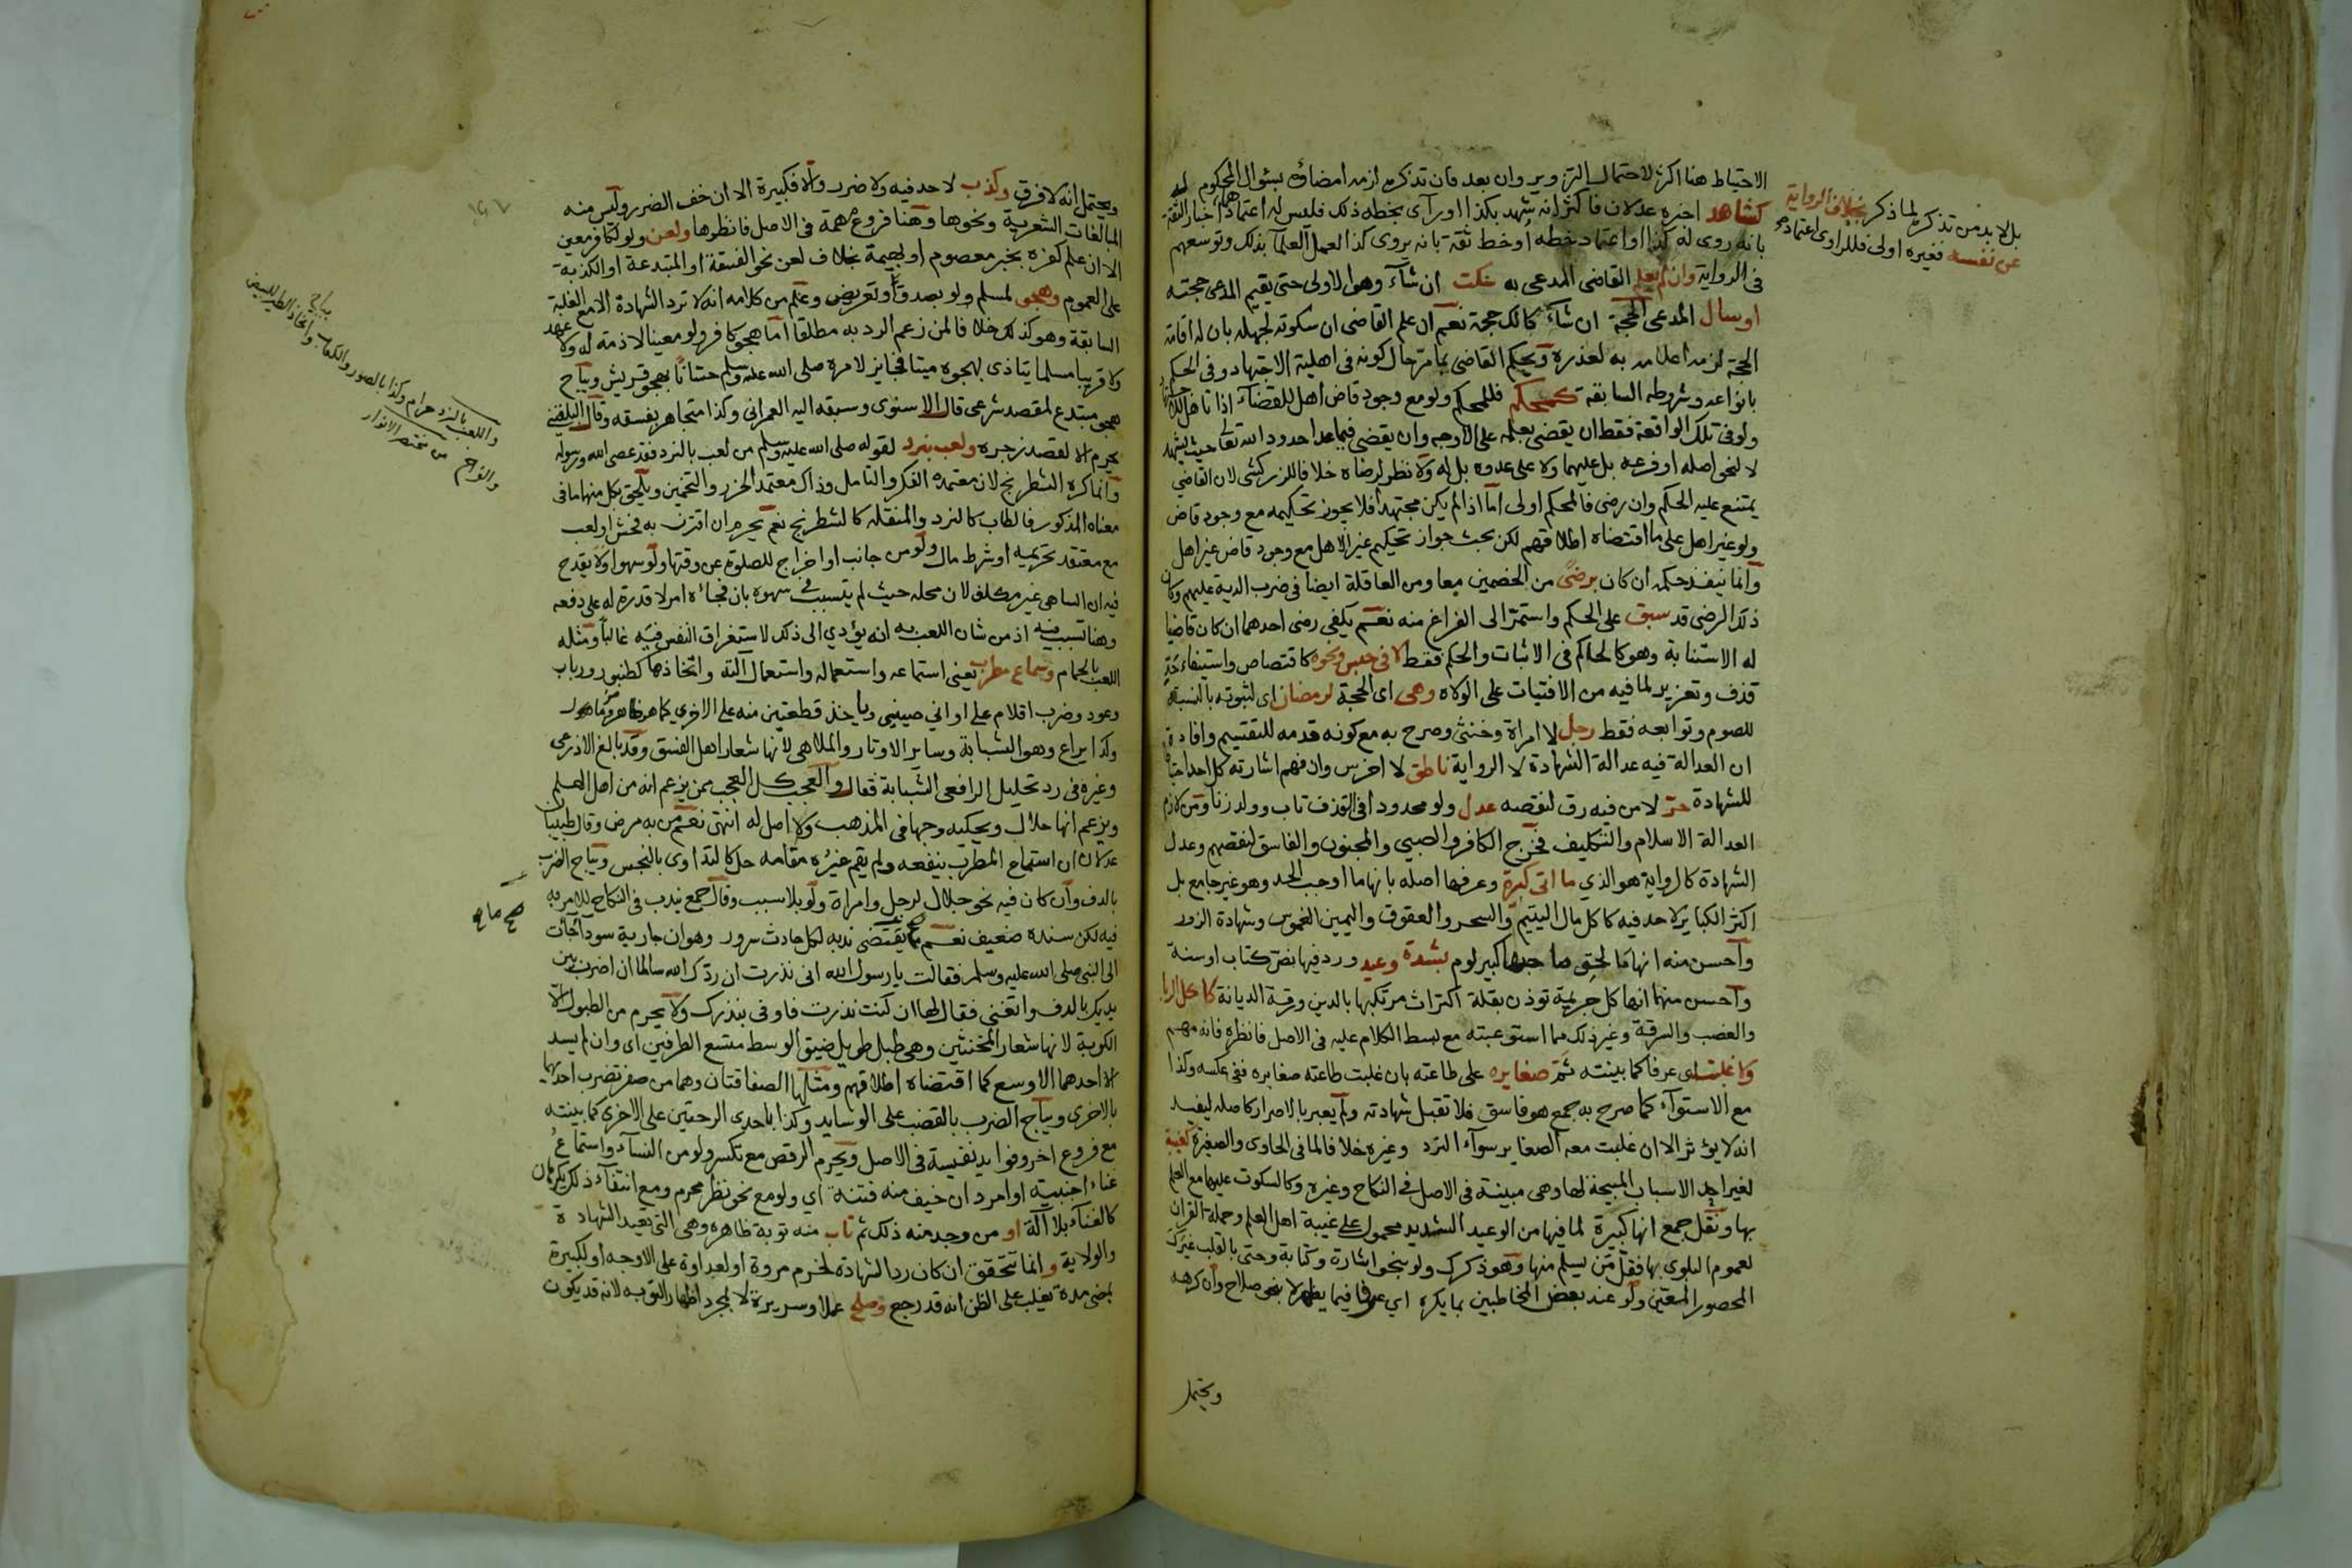 الاحتياط هنا اكثر لاحتمال التزوير وان بعد فان تذكره لزمه امضاؤه بسؤال المحكوم له
كشاهد اخبره عدلان فاكثر انه شهد بكذا او رآى بخطه ذلك فليس له اعتماد اخبار الثقة
بانه روى له كذا او اعتماد خطه او خط ثقة بانه يروى كذا لعمل العلماء بذلك وتوسعهم
فى الرواية وان لم يعلم القاضى المدعى به سكت ان شآء وهو الاولى حتى يقيم المدعى حجته
او سال المدعى الحجة ان شآء كالك حجة نعم ان علم القاضى ان سكوته لجهله بان له اقامة
الحجة لزمه اعلامه به لعذره ويحكم القاضى بما مر حال كونه فى اهلية الاجتهاد وفى الحكم
بانواعه وشروطه السابقة كمحكم فللمحكم ولو مع وجود قاض اهل للقضآء اذا تاهل لذلك
ولو فى تلك الواقعة فقط ان يقضى بعلمه على الاوجه وان يقضى فيما عدا حدود الله تعالى حيث يشهد
لا لنحو اصله او فرعه بل عليهما ولا على عدوه بل له ولا نظر لرضاه خلافا للزركشى لان القاضى
يمتنع عليه الحكم وان رضى فالمحكم اولى اما اذا لم يكن مجتهدا فلا يجوز تحكيمه مع وجود قاض
ولو غير اهل على ما اقتضاه اطلاقهم لكن بحث جواز تحكيم غير الاهل مع وجود قاض غير اهل
وانما ينفذ حكمه ان كان برضى من الخصمين معا ومن العاقلة ايضا فى ضرب الدية عليهم وكان
ذلك الرضى قد سبق على الحكم واستمر الى الفراغ منه نعم يكفى رضى احدهما ان كان قاضيا
له الاستنابة وهو كالحاكم فى الاثبات والحكم فقط لا فى حبس ونحوه كاقتصاص واستيفاء حد
قذف وتعزير لما فيه من الافتيات على الولاة وهى اى الحجة لرمضان اى لثبوته بالنسبة
للصوم وتوابعه فقط رجل لا امراة وخنثى وصرح به مع كونه قدمه للتقسيم وافادة
ان العدالة فيه عدالة الشهادة لا الرواية ناطق لا اخرس وان فهم اشارته كل احد احتياطا
للشهادة حر لا من فيه رق لنقصه عدل ولو محدودا فى القذف تاب وولد زنا ومن لازم
العدالة الاسلام والتكليف فخرج الكافر والصبى والمجنون والفاسق لنقصهم وعدل
الشهادة كالرواية هو الذي ما اتى كبيرة وعرفها اصله بانها ما اوجب الحد وهو غير جامع بل
اكثر الكبائر لا حد فيه كاكل مال اليتيم والسحر والعقوق واليمين الغموس وشهادة الزور
وآحسن منه انها ما لحق صاحبها كبير لوم بشدة وعيد ورد فيها بنص كتاب او سنة
وآحسن منهما انها كل جريمة توذن بقلة اكتراث مرتكبها بالدين ورقة الديانة كاكل الربا
والغصب والسرقة وغير ذلك مما استوعبته مع بسط الكلام عليه فى الاصل فانظره فانه مهم
ولا غلبت اى عرفا كما بينته ثم صغايره على طاعته بان غلبت طاعته صغايره ففى عكسه وكذا
مع الاستوآء كما صرح به جمع هو فاسق فلا تقبل شهادته ولم يعبر بالاصرار كاصله ليفيد
انه لا يؤثر الا ان غلبت معه الصغاير سوآء النرد وغيره خلافا لما فى الحاوى والصغيرة كغيبة
لغير احد الاسباب المبيحة لها وهى مبينة فى الاصل فى النكاح وغيره وكالسكوت عليها مع العلم
بها ونقل جمع انها كبيرة لما فيها من الوعيد الشديد محمول على غيبة اهل العلم وحملة القران
لعموم البلوى بها فقل من يسلم منها وهو ذكرك ولو بنحو اشارة وكتابة وحتى بالقلب غيرك
المحصور المعين ولو عند بعض المخاطبين بما يكره اي عرفا فيما يظهر لا بنحو صلاح وان كرهه
ويحتمل
بل لا بد من تذكره لما ذكر بخلاف الرواية
عن نفسه فغيره اولى فللراوى اعتماد
ويحتمل انه لا فرق وكذب لا حد فيه ولا ضرر والا فكبيرة الا ان خف الضرر وليس منه
المبالغات الشعرية ونحوها وهنا فروع مهمة فى الاصل فانظرها ولعن ولو لكافر معين
الا ان علم كفره بخبر معصوم او لبهيمة بخلاف لعن نحو الفسقة او المبتدعة او الكذبة
على العموم وهجو لمسلم ولو بصدق او تعريض وعلم من كلامه انه لا ترد الشهادة الا مع الغلبة
السابقة وهو كذلك خلافا لمن زعم الرد به مطلقا اما هجو كافر ولو معينا لا ذمة له ولا عهد
ولا قريبا مسلما يتاذى بهجوه ميتا فجايز لامره صلى الله عليه وسلم حسانا بهجو قريش ويباح
هجو مبتدع لمقصد شرعى قال الاسنوى وسبقه اليه العمرانى وكذا متجاهر بفسقه وقال البلقينى
يحرم الا لقصد زجره ولعب بنرد لقوله صلى الله عليه وسلم من لعب بالنرد فقد عصى الله ورسوله
وانما كره الشطرنج لان معتمده الفكر والتامل وذاك معتمد الحزر والتخمين ويلحق بكل منهما ما فى
معناه المذكور فالطاب كالنرد والمنقلة كالشطرنج نعم يحرم ان اقترن به فحش او لعب
مع معتقد تحريمه او شرط مال ولو من جانب او اخراج للصلوة عن وقتها ولو سهوا ولا يقدح
فيه ان الساهى غير مكلف لان محله حيث لم يتسبب فى سهوه بان فجاه امر لا قدرة له على دفعه
وهنا تسبب فيه اذ من شان اللعب به انه يؤدي الى ذلك لاستغراق النفس فيه غالبا ومثله
اللعب بالحمام وسماع مطرب يعنى استماعه واستعماله واستعمال آلته واتخاذها كطنبور ورباب
وعود وضرب اقلام على اوانى صينى
وكذا يراع وهو الشبابة وساير الاوتار والملاهى لانها شعار اهل الفسق وقد بالغ الاذرعى
وغيره فى رد تحليل الرافعى الشبابة فقال والعجب كل العجب ممن يزعم انه من اهل العلم
ويزعم انها حلال ويحكيه وجها فى المذهب ولا اصل له انتهى نعم من به مرض وقال طبيبان
عدلان ان استماع المطرب ينفعه ولم يقم غيره مقامه حل كالتداوى بالنجس ويباح الضرب
بالدف وان كان فيه نحو جلاجل لرجل وامراة ولو بلا سبب وقال جمع يندب فى النكاح للامر به
فيه لكن سنده ضعيف نعم يقتضى ندبه لكل حادث سرور وهو ان جارية سودآ اتت
الى النبى صلى الله عليه وسلم فقالت يا رسول الله انى نذرت ان ردك الله سالما ان اضرب بين
يديك بالدف واتغنى فقال لها ان كنت نذرت فاوفى بنذرك ولا يحرم من الطبول الا
الكوبة لانها شعار المخنثين وهى طبل طويل ضيق الوسط متسع الطرفين اى وان لم يسد
الا احدهما الاوسع كما اقتضاه اطلاقهم ومثلها الصفاقتان وهما من صفر تضرب احديهما
بالاخرى ويباح الضرب بالقضب على الوسايد وكذا باحدى الراحتين على الاخرى كما بينته
مع فروع اخر وفوايد نفيسة فى الاصل ويحرم الرقص مع تكسر ولو من النسآء واستماع
غناء اجنبية او امرد ان خيف منه فتنة اي ولو مع نحو نظر محرم ومع انتفآء ذلك يكرهان
كالغنآء بلا آلة او من وجد منه ذلك ثم تاب منه توبة ظاهره وهى التى تعيد الشهادة
والولاية وانما تتحقق ان كان رد الشهادة لخرم مروة او لعداوة على الاوجه او لكبيرة
بمضى مدة يغلب على الظن انه قد رجع وصلح عملا وسريرة لا بمجرد اظهار التوبة لانه قد يكون
واللعب بالنرد حرام وكذا بالصور والكعاب واتخاذ الطير للبيض
والفرخ يباح
من مختصر الانوار